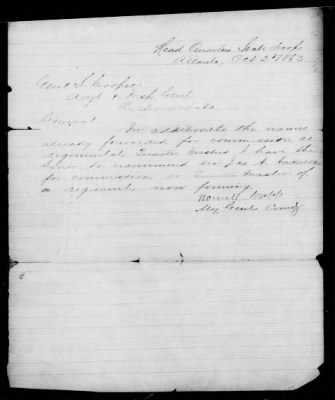 Head Quarters State Troops
Atlanta Oct 2nd 1863
Genl S. Cooper
Adjt & Insp Genl
Richmond Va
General
In addition to the names
already forwarded for commission as
regimental Quarter Masters I have the
honor to recommend Mr Jas A. Anderson
for commission as Quarter Master of
a regiment now forming
Howell Cobb
Maj Genl Comdg